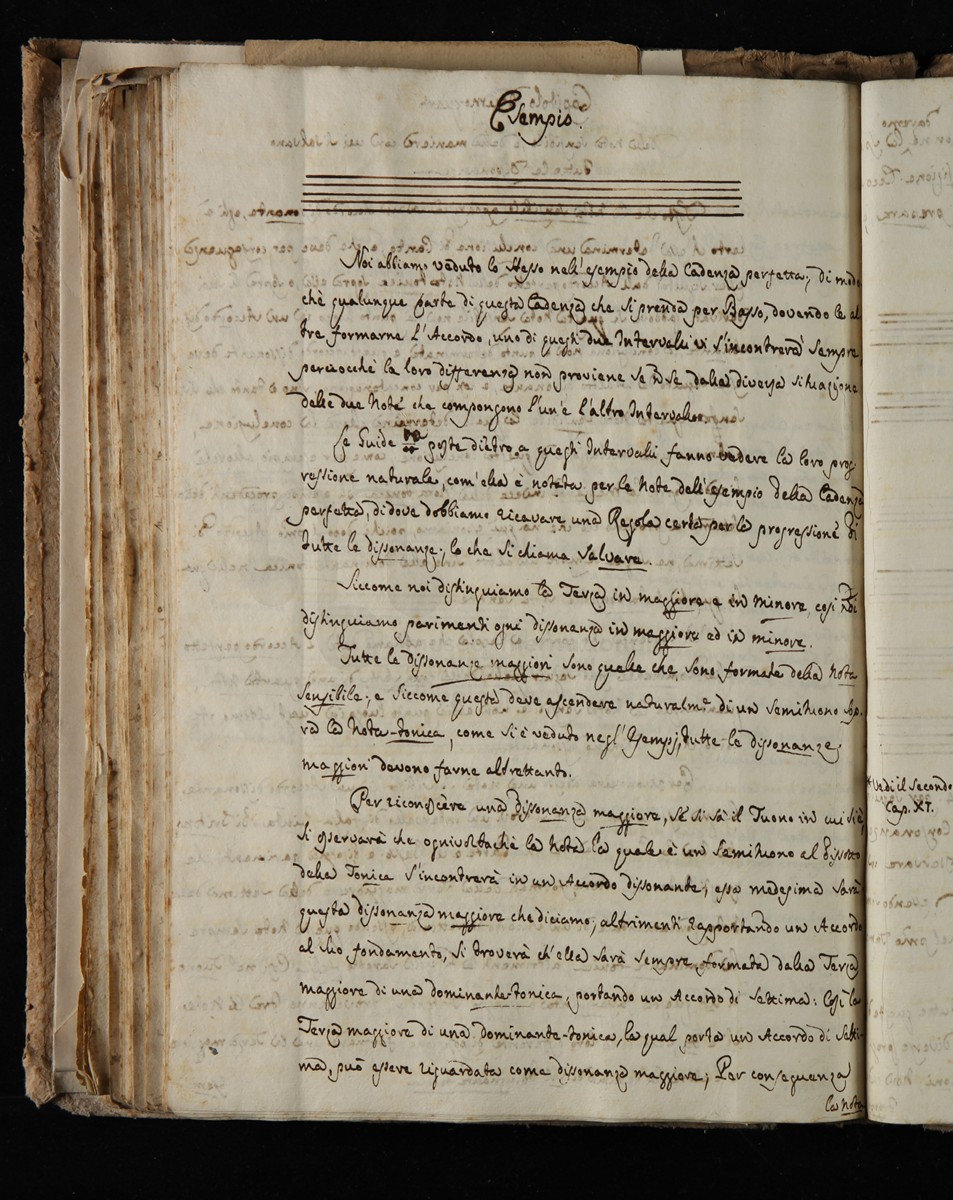 Esempio.
Noi abbiamo veduto lo stesso nell'esempio della Cadenza perfetta; di modo
chè qualunque parte di questa Cadenza che si prenda per Basso, dovendo le al
tre formarne l'Accordo, uno di questi due Intervalli vi s'incontrerà sempre
perciocchè la loro differenza non proviene se ñ se dalla diversa situazione
delle due Note che compongono l'un'e l'altro Intervallo.
Le Guide poste dietro a questi Intervalli fanno vedere la loro prog
ressione naturale, com'ella è notata per le Note dell'esempio della Cadenza
perfetta, di dove dobbiamo ricavare una Regola certa per la progressione di
tutte le dissonanze; lo che si chiama salvare.
Siccome noi distinguiamo la Terza in maggiore e in minore, così
distinguiamo parimenti ogni dissonanza in maggiore ed in minore.
Tutte le dissonanze maggiori sono quelle che sono formate della Nota
sensibile; e siccome questa deve ascendere naturalmᵉ di un semituono sop.
ra la Nota-tonica, come si è veduto negl'Esempj, tutte le dissonanze
maggiori devono farne altrettanto.
Per riconoscere una dissonanza maggiore, se si sà il Tuono in cui si è
si osserverà che ognivoltachè la Nota la quale è un semituono al dissotto
della Tonica s'incontrerà in un Accordo dissonante, essa medesima sarà
questa dissonanza maggiore che diciamo; altrimenti rapportando un Accordo
al suo fondamento, si troverà ch'ella sarà sempre formata dalla Terza
maggiore di una dominante-tonica, portando un Accordo di settima: Così la
Terza maggiore di una dominante-tonica, la qual porta un Accordo di setti-
ma, può essere riguardata come dissonanza maggiore; Per conseguenza
la Nota
Vedi il Secondo
Cap. XI.